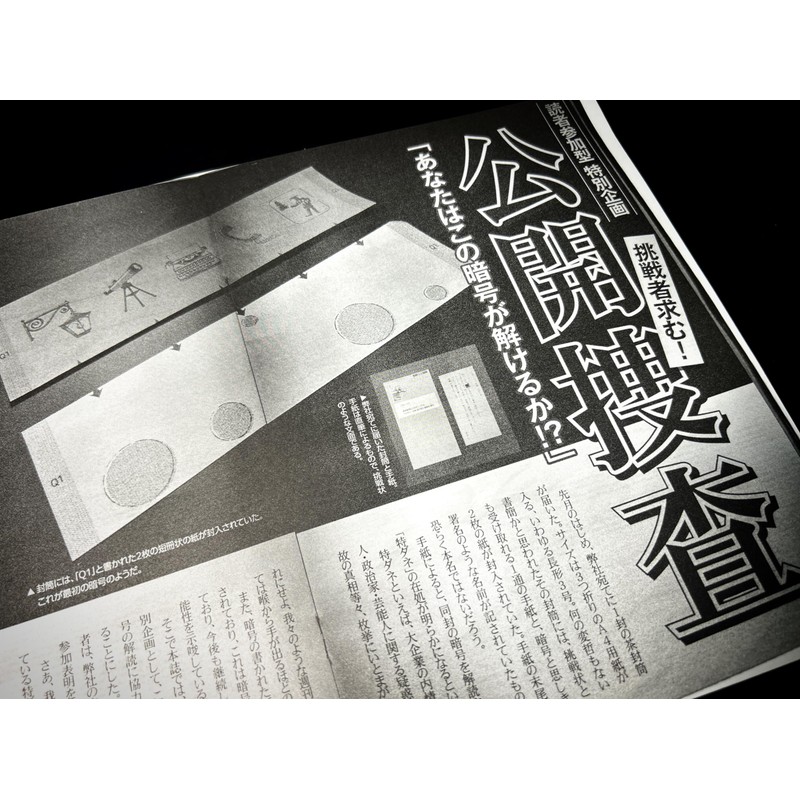 読者参加型 特別企画
挑戦者求む!
公開捜査
「あなたはこの暗号が解けるか!?」
先月のはじめ、弊社宛てに、一封の茶封筒
が届いた。サイズは3つ折りのA4用紙が
入る、いわゆる長形3号。何の変哲もない
書簡かと思われたその封筒には、挑戦状と
も受け取れる一通の手紙と、暗号と思しき
2枚の紙が封入されていた。手紙の末尾
署名のような名前が記されていたもの
恐らく本名ではないだろう。
手紙によると、同封の暗号を解読
『特ダネ』の在処が明らかになるとい
特ダネといえば、大企業の内情
人・政治家・芸能人に関する疑惑
故の真相等々、枚挙にいとまが
▶弊社宛てに届いた封筒と手紙。
手紙は直筆によるもので、挑戦状
のような文面である。
Q1
Q1
Q1
▲封筒には、「Q1」と書かれた2枚の短冊状の紙が封入されていた。
これが最初の暗号のようだ。
れにせよ、我々のような週刊
ては喉から手が出るほどの
また、暗号の書かれた
されており、これは暗号
ており、今後も継続し
能性を示唆している
そこで本誌では、
別企画として、こ
号の解読に協力
ることにした。
者は、弊社の
参加表明を
さあ、我
ている特